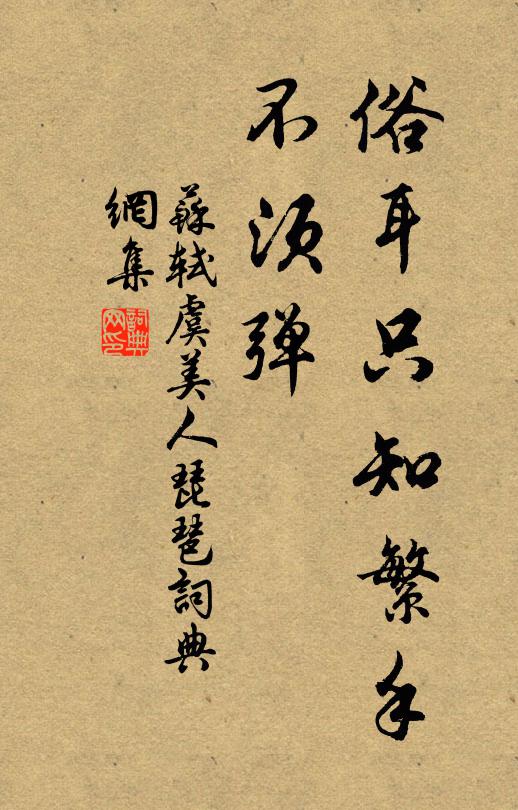 俗耳只知繁手
不须弹
蘇軾虞美人琵琶詞典
網集
詞典网印